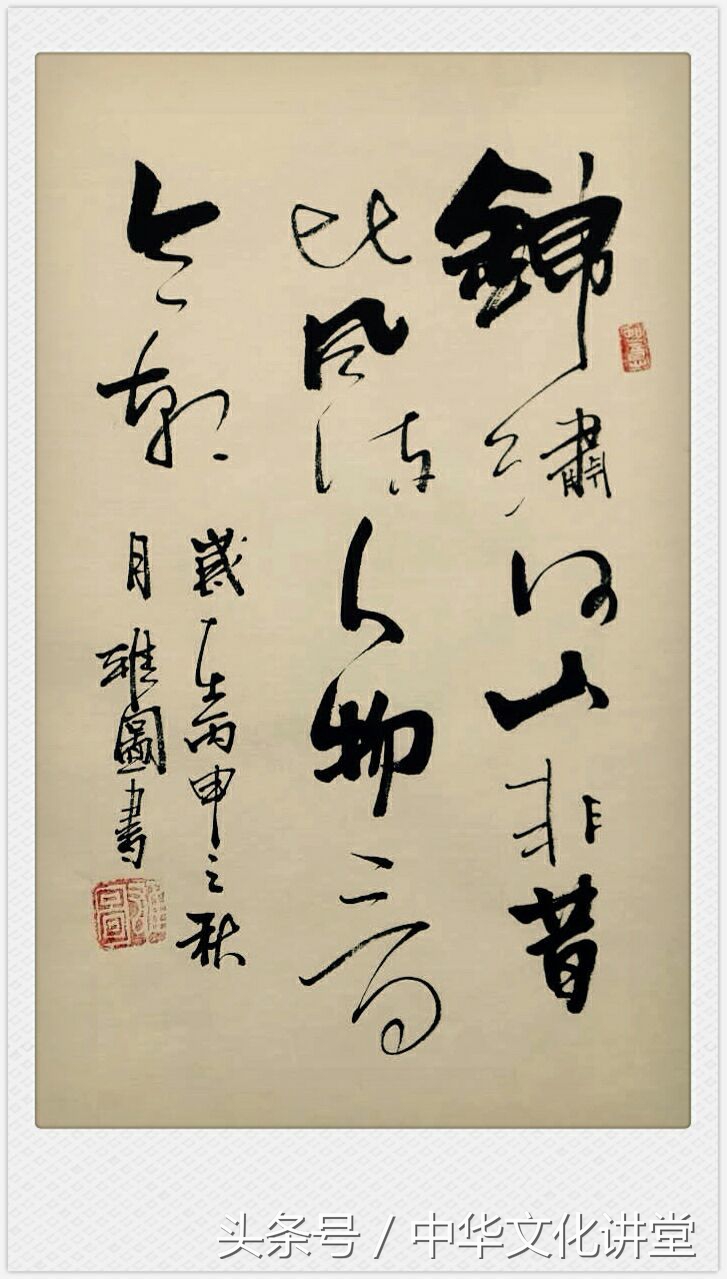 錦繡河山非昔
比風流人物看
今朝
歲在丙申之秋
月雅圖書
头条号 / 中华文化讲堂